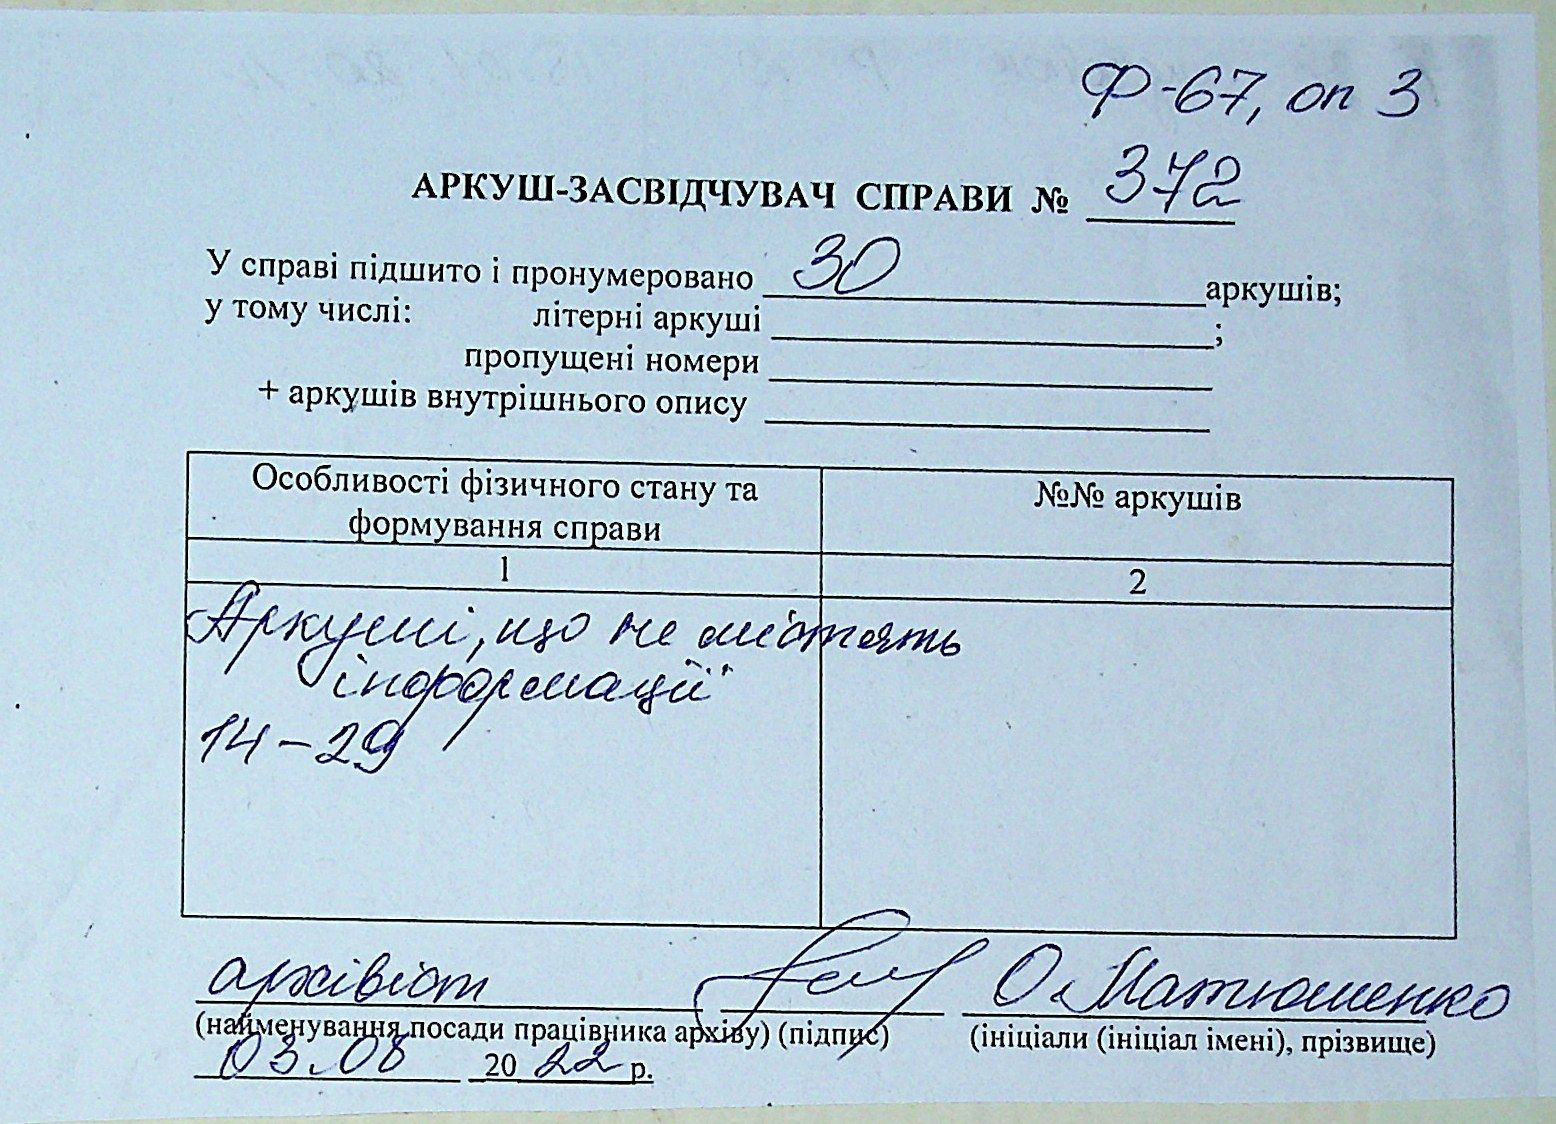 Ф-67, оп 3
АРКУШ-ЗАСВІДЧУВАЧ СПРАВИ № 372
У справі підшито і пронумеровано 30 аркушів;
у тому числі: літерні аркуші ;
пропущені номери
+ аркушів внутрішнього опису
Особливості фізичного стану та формування справи
№№ аркушів
1 2
Аркуші, що не містять
інформації
14-29
архівіст О. Матюшенко
(найменування посади працівника архіву) (підпис) (ініціали (ініціал імені), прізвище)
03.08 2022 р.